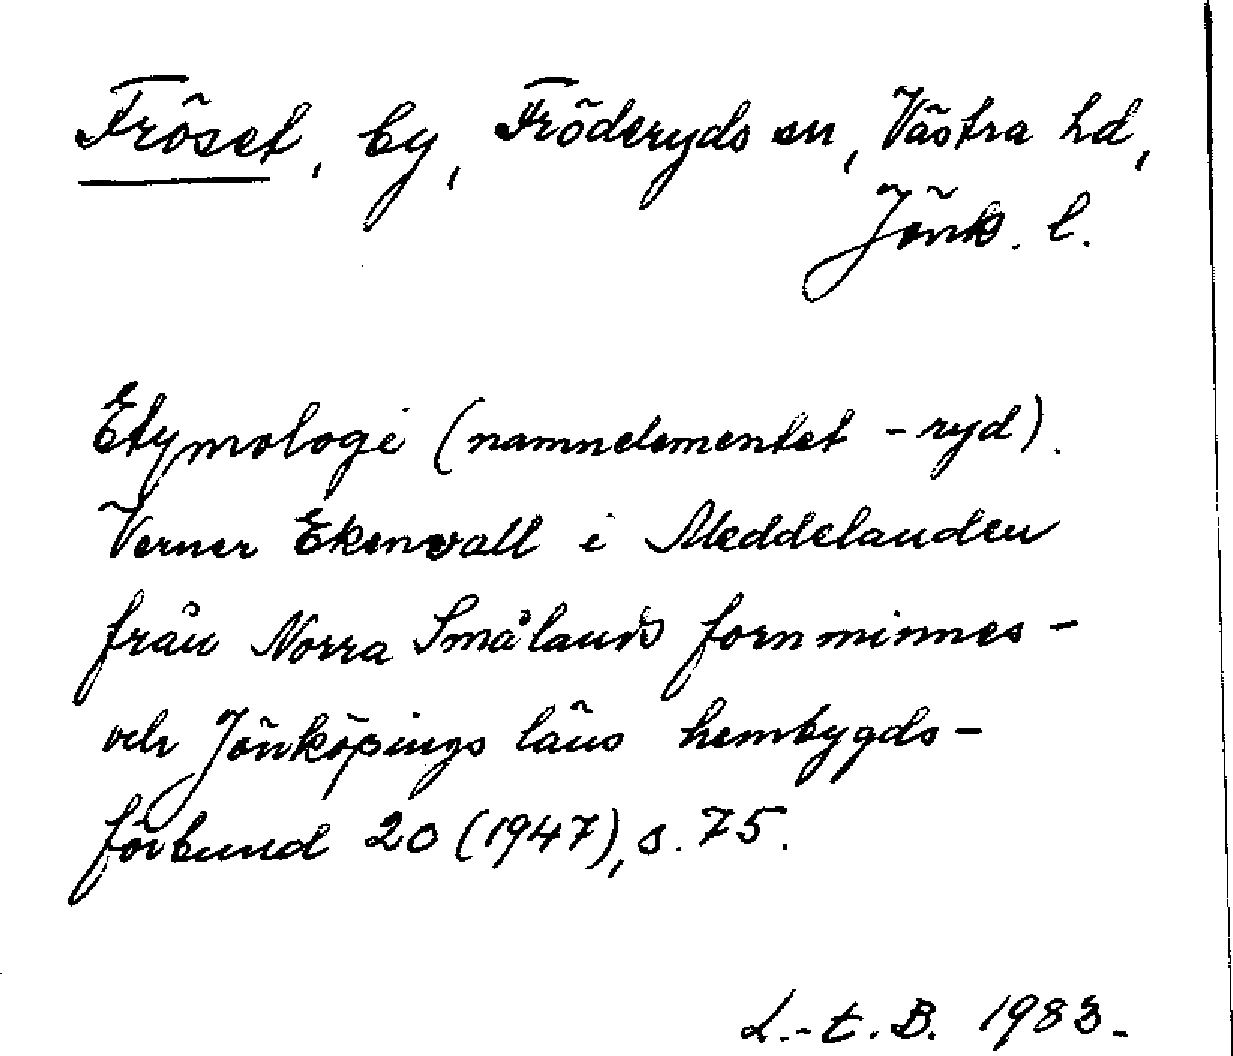 Fröset, by, Fröderyds sn, Västra hd,
Jönk. l.
Etymologi (namnelementet -ryd).
Verner Ekenvall i Meddelanden
från Norra Smålands fornminnes-
och Jönköpings läns hembygds-
förbund 20 (1947), s. 75.
L.-E. B. 1983.